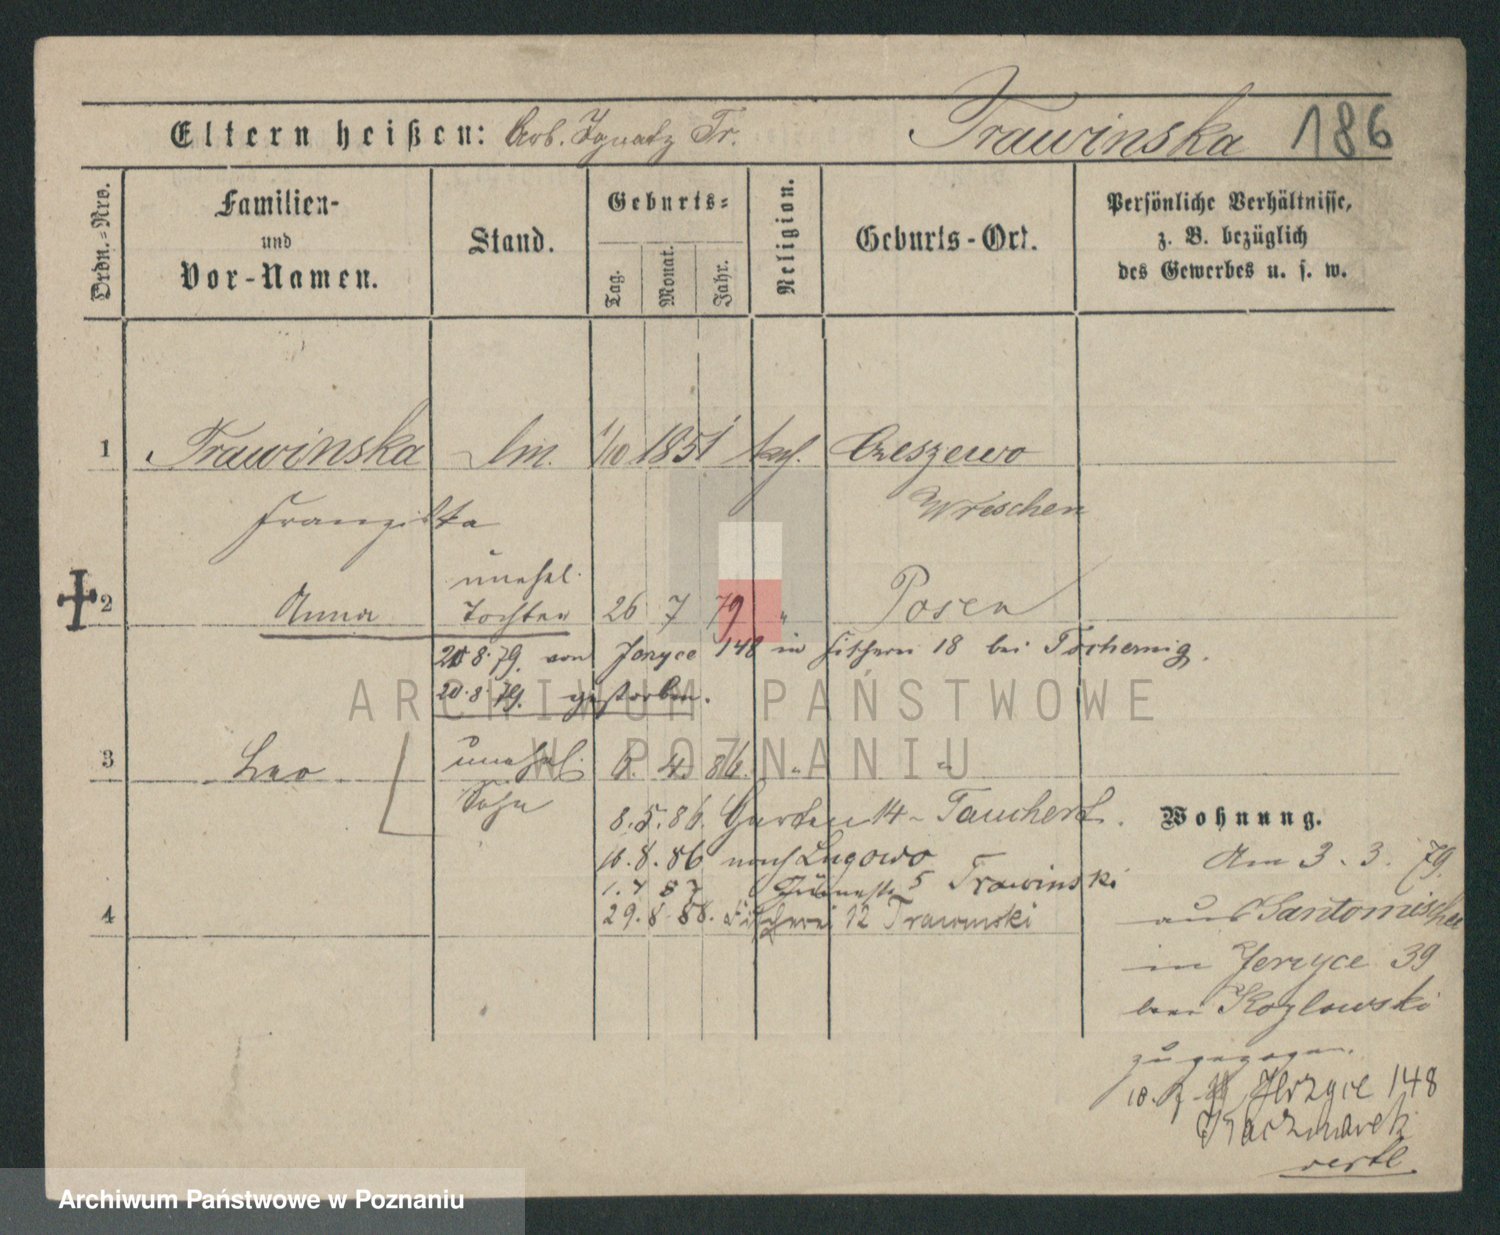 Eltern heißen: Arb. Ignatz Tr. Trawinska 186
Ordn.-Nro.
Familien-
und
Vor-Namen.
Stand.
Geburts-
Tag.
Monat.
Jahr.
Religion.
Geburts-Ort.
Persönliche Verhältnisse,
z. B. bezüglich
des Gewerbes u. s. w.
1 Trawinska 1/10 1851 kath. Czeszewo
Franziska Wreschen
unehel.
2 Anna Tochter 26 7 79 " Posen
20.8.79. von Jeryce 148 in Fischerei 18 bei Tschernig.
20.8.79. gestorben.
3 Leo unehel. 6. 4. 86. " "
Sohn
8.5.86. Garten 14 - Tauchert.
10.8.86 nach Lugowo
1.7 87 5 Trawinski
4 29.8.88. Fischerei 12 Trawinski
Wohnung.
Am 3. 3. 79.
aus Santomischel
in Jerzyce 39
bei Kozlowski
zugezogen.
10. Jerzyce 148
Kaczmarek
vertl.
ARCHIWUM PAŃSTWOWE
W POZNANIU
Archiwum Państwowe w Poznaniu